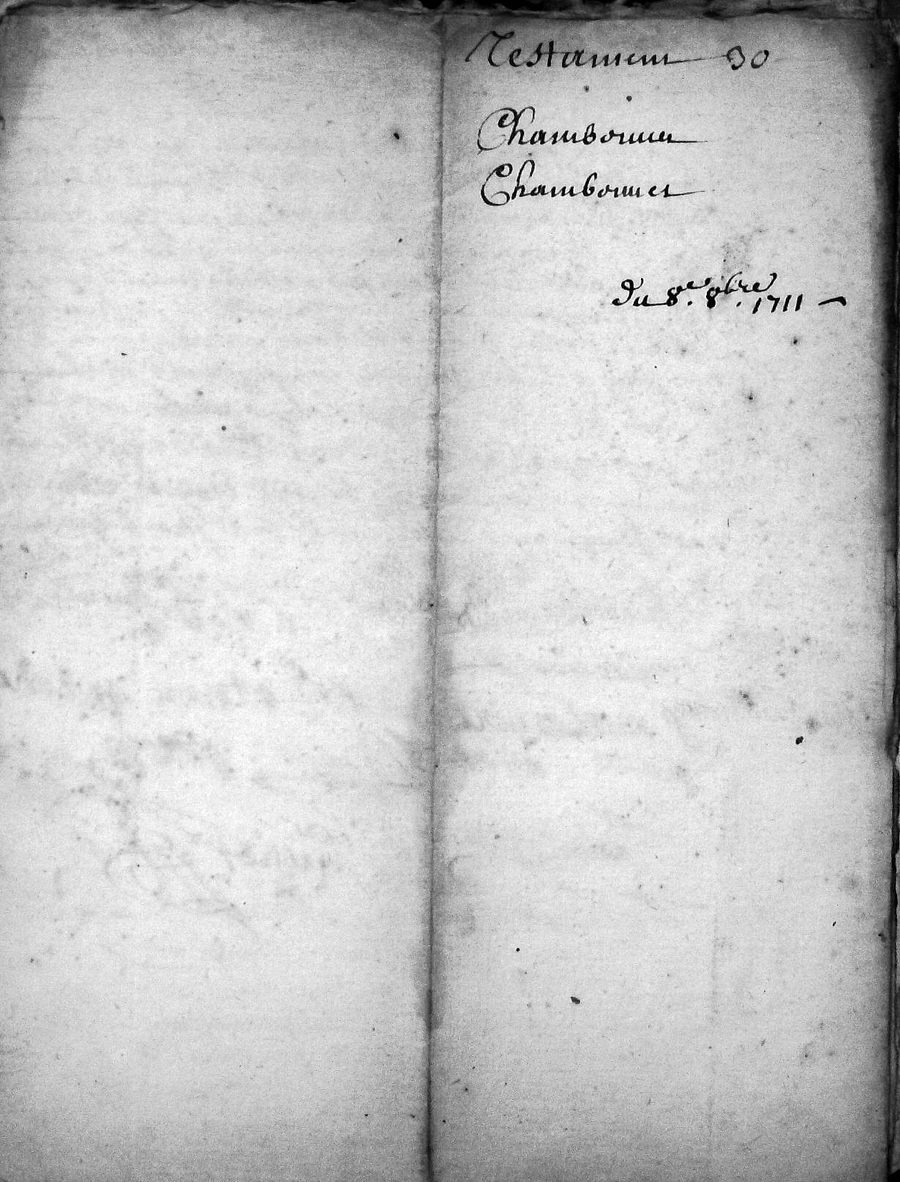 Testament 30
Chambonnet
Chambonnet
du 8e. 8bre. 1711